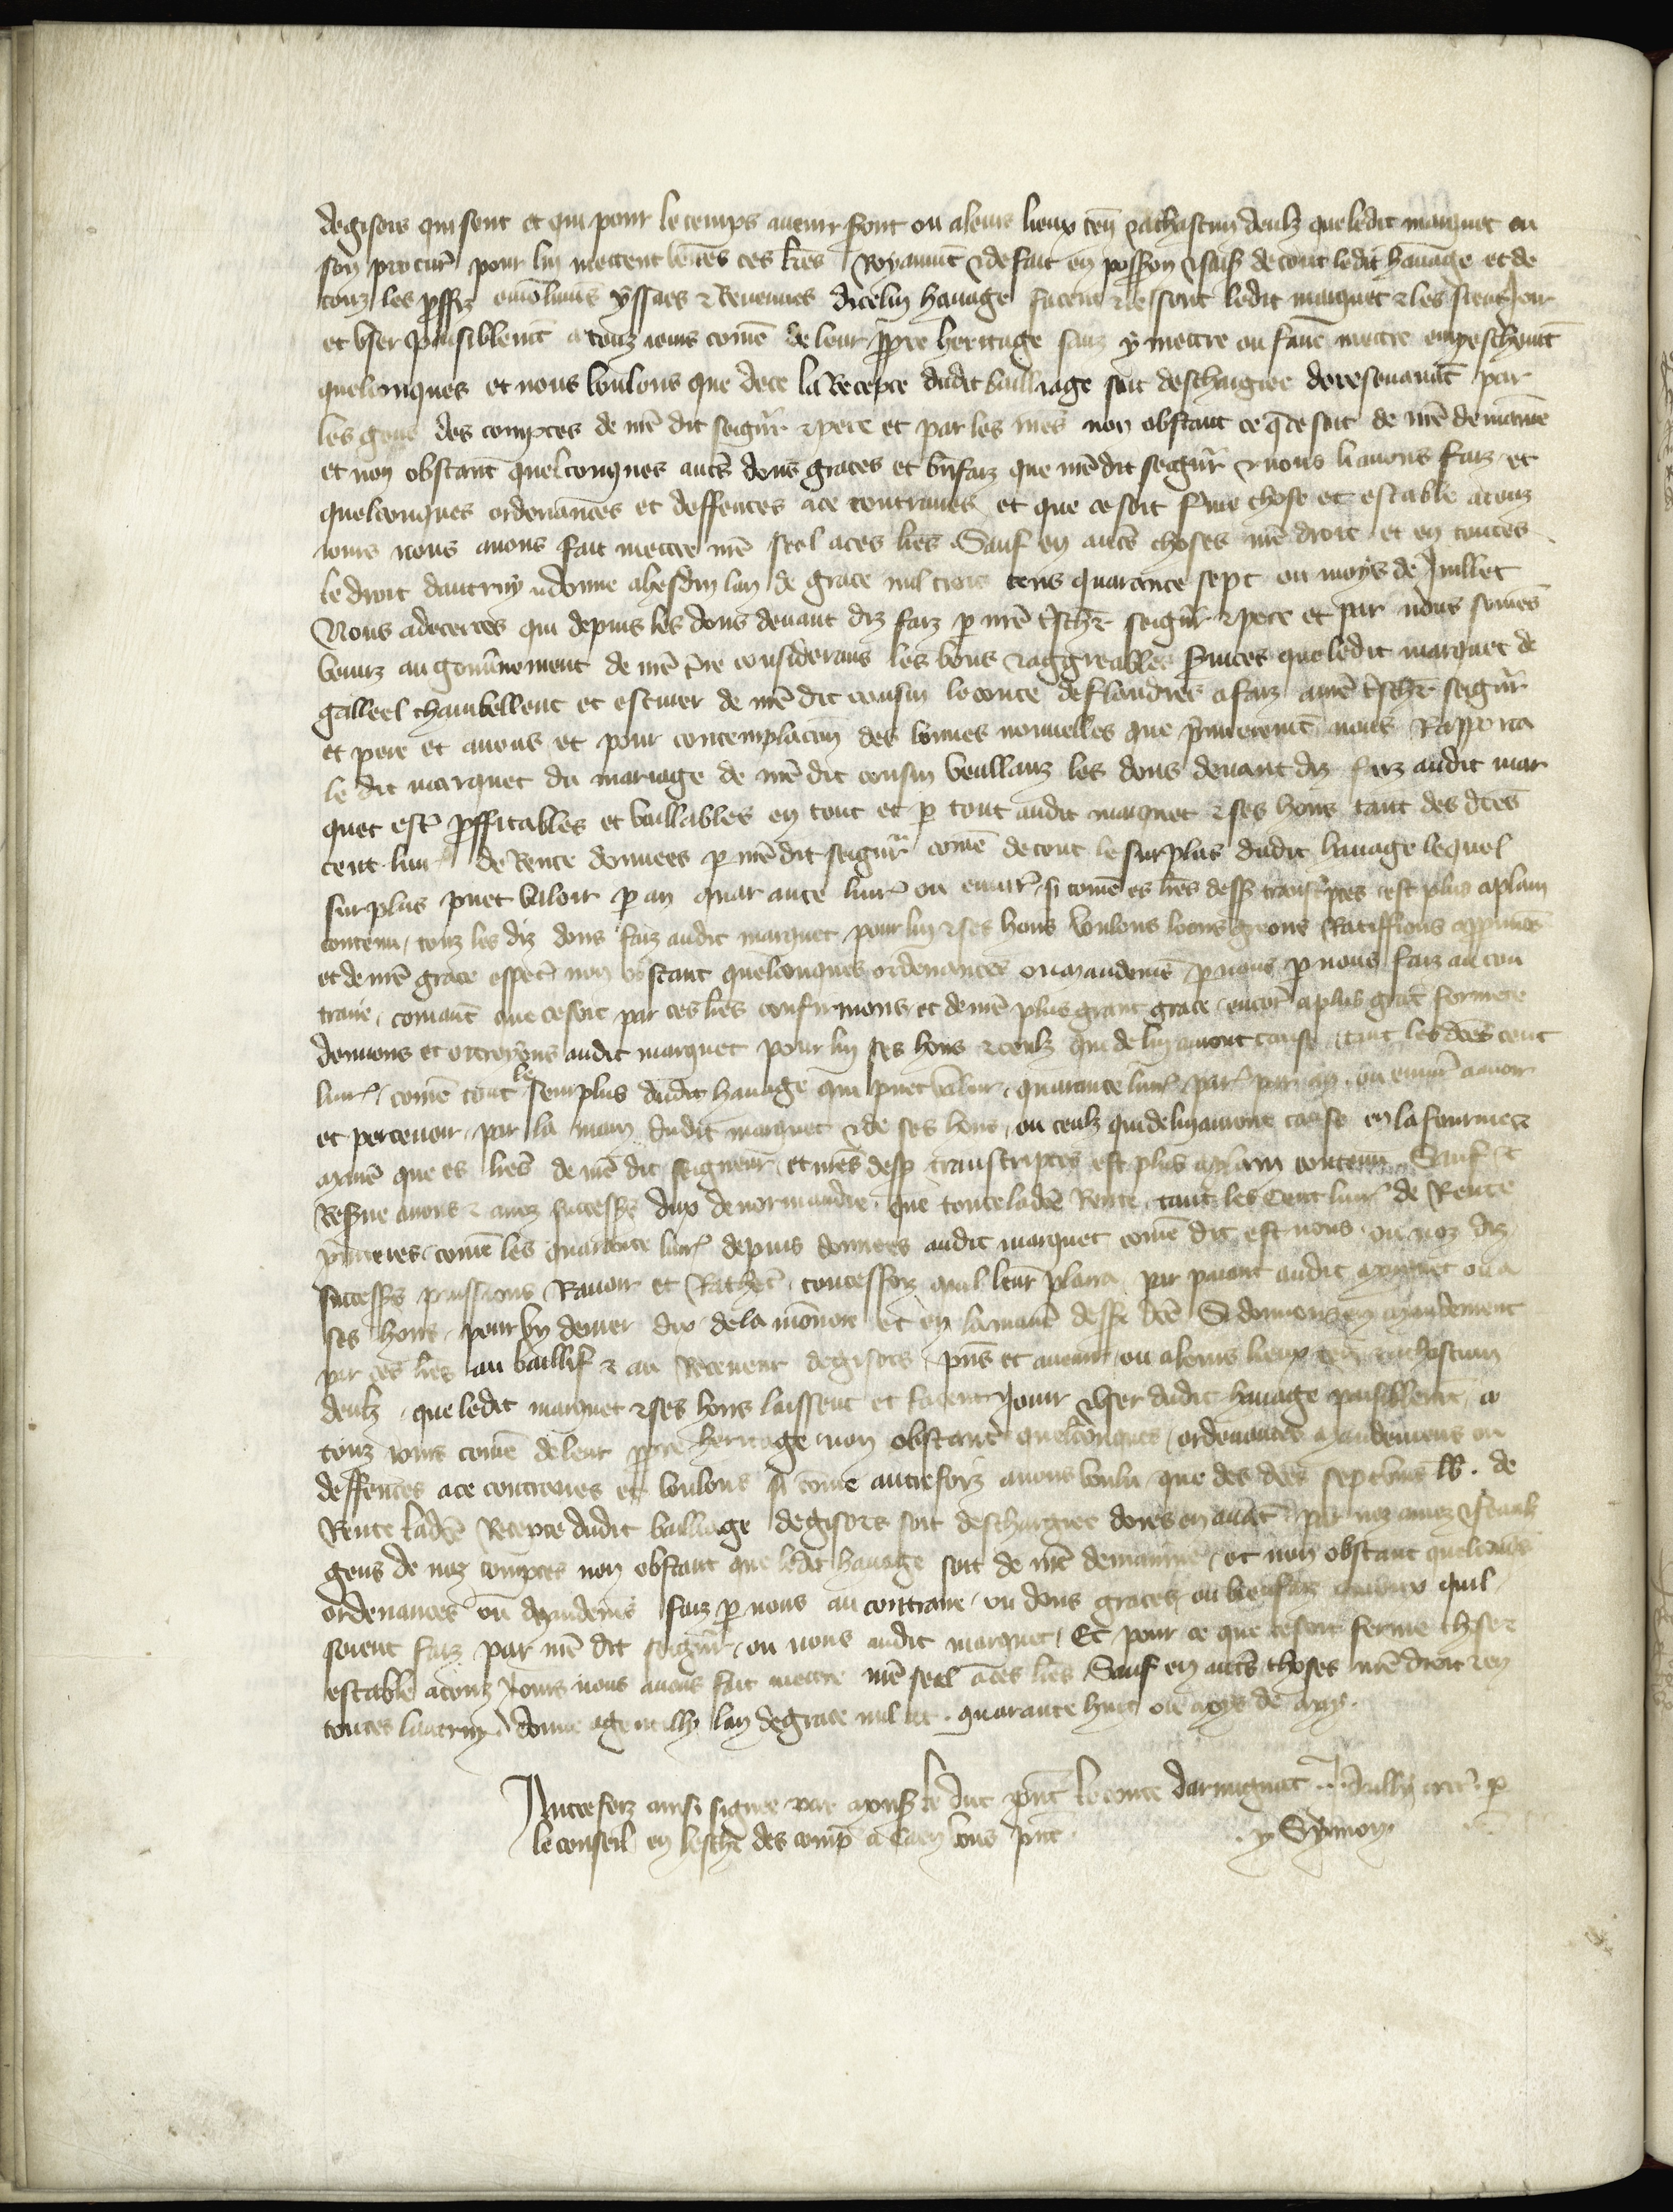 de gisors qui sont et qui pour le temps avenir seront ou a leurs lieux ten̄ & a chascun deulz que ledit marquet ou
son procur̄ pour lui mettent veues ces lr̄es Royaumt̄ & de fait en possion & sais̄ de tout ledit havage et de
touz les proffiz emolumēs yssues & Revenues dicelui havage facent & lessent ledit marquet & les siens Jouir
et user paisiblemt̄ a touz jours comē de leur ppre heritage sanz y mettre ou faire mettre empeschemt̄
quelconques et nous voulons que de ce la Recepte dudit bailliage soit deschargiee doresenavāt par
les gens des comptes de nr̄e dit seigr̄ & pere et par les nr̄es non obstant ce q̄ ce soit de nr̄e demaine
et non obstant quelconques autr̄s dons graces et bn̄faiz que nr̄e dit seigr̄ & nous li avons faiz et
quelconques ordenances et deffences a ce contraires et que ce soit ferme chose et estable a touz
jours nous avons fait mettre nr̄e seel a ces lr̄es Sauf en autr̄s choses nr̄e droit et en toutes
le droit dautruy donne a hesdin lan de grace mil trois cens quarante sept ou moys de Juillet
Nous adecertes qui depuis les dons devant diz faiz p nr̄e t̄schr̄ seigr̄ & pere et par nous somēs
venuz au gouv̄nement de nr̄e t̄re considerans les bons & aggreables s̄vices que ledit marquet de
galleel chambellenc et escuier de nr̄e dit cousin le conte de flandres a faiz a nr̄e t̄schr̄ seigr̄
et pere et a nous et pour contemplacōn des bonnes nouvelles que p̄mieremt̄ nous Rapporta
le dit marquet du mariage de nr̄e dit cousin veullanz les dons devant diz faiz audit mar
quet estr̄ proffitables et vaillables en tout et p tout audit marquet & ses hoirs tant des dc̄es
cent livr̄ de Rente donnees p nr̄e dit seigr̄ comē de tout le surplus dudit havage lequel
surplus puet valoir p an quarante livr̄ ou envir̄ si comē es lr̄es dess̄ transc̄ptes est plus aplain
contenu touz les diz dons faiz audit marquet pour lui & ses hoirs voulons loons greons Ratiffions app̄uvōs
et de nr̄e grace especī non obstant quelconques ordenances ou mandemēs p nous faiz au con
traire comant que ce soit par ces lr̄es confirmons et de nr̄e plus grant grace encor̄ a plus grāt fermete
donnons et octroyons audit marquet pour lui ses hoirs & ceulz qui de lui auront cause tant les dc̄es cent
livr̄ comē tout le seurplus dudit havage qui puet valoir quarante livr̄ par̄ par an ou envir̄ a avoir
et percevoir par la main dudit marquet & de ses hoirs ou ceulz qui de lui auront cause en la fourme &
manr̄e que es lr̄es de nr̄e dit seigneur et nr̄es dess̄ transcriptes est plus aplain contenu Sauf &
Res̄ve a nous & a noz success̄s dux de normandie que toute ladc̄e Rente tant les Cent livr̄ de Rente
p̄mieres comē les quarante livr̄ depuis donnees audit marquet comē dit est nous ou noz diz
success̄s puissions Ravoir et Rachet̄ toutesfoiz quil leur plaira par paiant audit marquet ou a
ses hoirs pour un denier dix de la monnoie et en la manr̄e dess̄ dc̄e Si donnons en mandement
par ces lr̄es au baillif & au Receveur de gisors pn̄s et avenir ou a leurs lieux ten̄ & a chascun
deulz que ledit marquet & ses hoirs laissent et facent Jouir & user dudit havage paisiblemt̄ a
touz jours comē de leur ppre heritage non obstant quelconques ordenances mandemens ou
deffences a ce contraires et voulons si come autrefoiz avons voulu que des dc̄es septvins lb̄. de
Rente ladc̄e Recepte dudit bailliage de gisors soit deschargiee dores en avāt par noz amez & feaulz
gens de noz comptes non obstant que ledit havage soit de nr̄e demaine et non obstant quelconqs̄
ordenances ou mandemēs faiz p nous au contraire ou dons graces ou bienfaiz quil
soient faiz par nr̄e dit seigr̄ ou nous audit marquet Et pour ce que ce soit ferme chose &
estable a touz Jours nous avons fait mettre nr̄e seel a ces lr̄es Sauf en autr̄s choses nr̄e droit & en
toutes lautruy donne a gentilly lan de grace mil ccc. quarante huit ou moys de may.
Autrefoiz ainsi signee par mons̄ le duc pn̄t le conte darmignac p
le conseil en lesch̄r des comp̄ a vous pn̄t. Symon